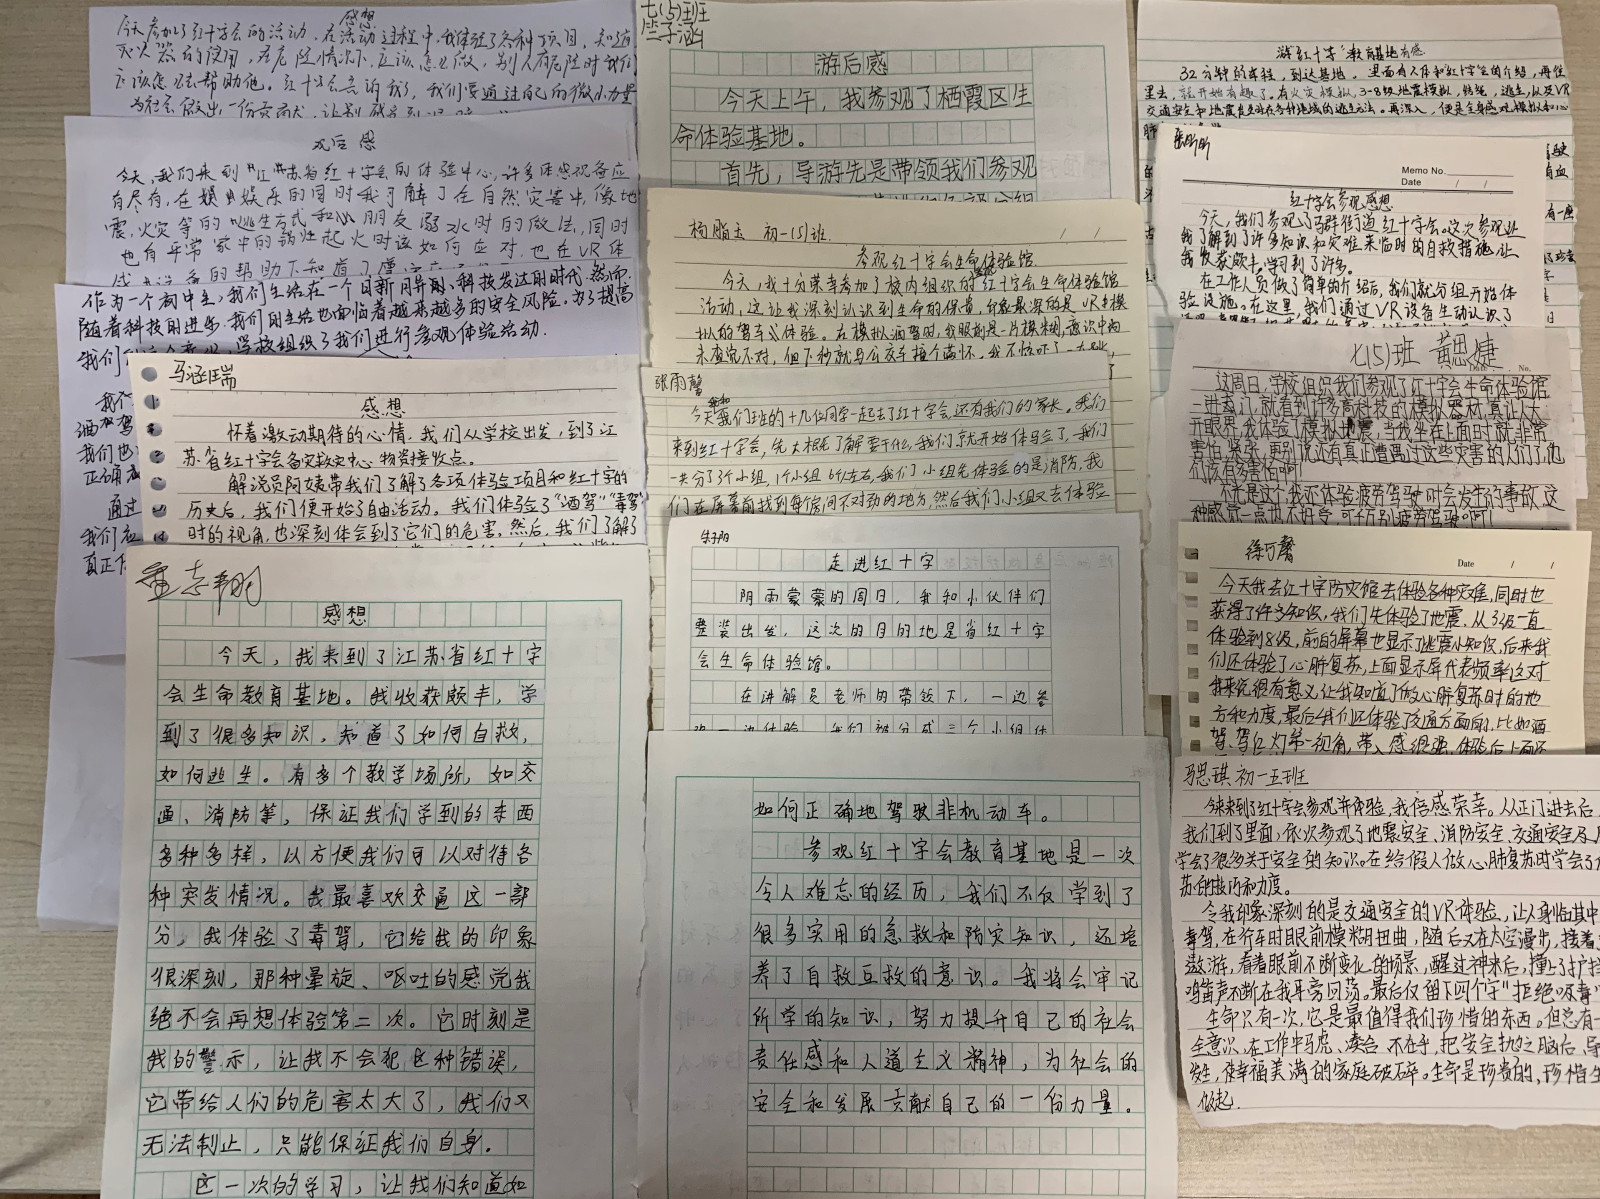 感想
今天参加了红十字会的活动，在活动过程中，我体验了各种项目，知道
灭火器的使用，在危险情况下应该怎么做，别人有危险时我们
应该怎么去帮助他。红十字会告诉我，我们要通过自己的微小力量
为社会做出一份贡献
观后感
今天，我们来到江苏省红十字会的体验中心，许多体感设备应
有尽有，在娱乐的同时我了解了在自然灾害中，像地
震，火灾等的逃生方式和小朋友溺水时的做法，同时
也有平常家中的锅灶起火时该如何应对，也在VR体
作为一个初中生，我们生活在一个日新月异，科技发达的时代，然而，
随着科技的进步，我们的生活也面临着越来越多的安全风险。为了提高
学校组织了我们进行参观体验活动。
马涵瑞
感想
怀着激动期待的心情，我们从学校出发，到了江
苏省红十字会备灾救灾中心物资接收点。
解说员阿姨带我们了解了各项体验项目和红十字的
历史后，我们便开始了自由活动。我们体验了“酒驾”“毒驾”
时的视角，也深刻体会到了它们的危害。然后，我们了解了
感想
今天，我来到了江苏省红十字
会生命教育基地。我收获颇丰，学
到了很多知识，知道了如何自救，
如何逃生。有多个教学场所，如交
通、消防等，保证我们学到的东西
多种多样，以方便我们可以对待各
种突发情况。我最喜欢交通这一部
分，我体验了毒驾，它给我的印象
很深刻，那种晕旋、呕吐的感觉我
绝不会再想体验第二次。它时刻是
我的警示，让我不会犯这种错误，
它带给人们的危害太大了，我们又
无法制止，只能保证我们自身。
这一次的学习，让我们知道如
七(5)班
笪子涵
游后感
今天上午，我参观了栖霞区生
命体验基地。
首先，导游先是带领我们参观
杨脂玉 初一(5)班
参观红十字会生命体验馆
今天，我十分荣幸参加了校内组织的红十字会生命体验馆
活动，这让我深刻认识到生命的保贵，印象最深的是VR车模
拟的驾车体验。在模拟酒驾时，我眼前是一片模糊，意识中尚
未查觉不对，但下秒就与公交车撞个满怀，我不惊吓了一大跳
张雨馨
今天我和我们班的十几位同学一起去了红十字会，还有我们的家长。我们
来到红十字会，先大概了解要干什么，我们就开始体验了，我们
一共分了3个小组，1个小组6个左右，我们小组先体验的是消防，我
们在屏幕前找到每个房间不对劲的地方，然后我们小组又去体验
朱子阳
走进红十字
阴雨蒙蒙的周日，我和小伙伴们
整装出发，这次的目的地是省红十字
会生命体验馆。
在讲解员老师的带领下，一边参
观一边体验，我们被分成三个小组体
如何正确地驾驶非机动车。
参观红十字会教育基地是一次
令人难忘的经历，我们不仅学到了
很多实用的急救和防灾知识，还培
养了自救互救的意识。我将会牢记
所学的知识，努力提升自己的社会
责任感和人道主义精神，为社会的
安全和发展贡献自己的一份力量。
游“红十字”教育基地有感
32分钟的车程，到达基地。里面有人体和红十字会的介绍，再往
里去，就开始有趣了，有火灾模拟，3-8级地震模拟，结绳，逃生，以及VR
交通安全和地震发生时在各种地域的逃生方法。再深入，便是全身感观模拟和心
Memo No.
Date / /
红十字会参观感想
今天，我们参观了马群街道红十字会。这次参观让
我了解到了许多知识和灾难来临时的自救措施，让
我收获颇丰，学习到了许多。
在工作人员做了简单的介绍后，我们就分组开始体
验设施。在这里，我们通过VR设备生动认识了
七(5)班 黄思婕
这周日，学校组织我们参观了红十字会生命体验馆
一进大门，就看到许多高科技的模拟器材，真让人大
开眼界，我体验了模拟地震，当我坐在上面时就非常
害怕、紧张，更别说还有真正遭遇过这些灾害的人们了，他
们该有多害怕啊！
不光是这个我还体验疲劳驾驶时会发生的事故，这
种感觉一点也不好受，可千万别疲劳驾驶啊！
徐可馨
Date / /
今天我去红十字防灾馆去体验各种灾难，同时也
获得了许多知识，我们先体验了地震，从3级一直
体验到8级，前面屏幕也显示了逃震小知识，后来我
们还体验了心肺复苏，上面显示屏代表频率，这对
我来说很有意义，让我知道了做心肺复苏时的地
方和力度，最后我们还体验了交通方面的，比如酒
驾，驾红灯第一视角，带入感很强，体验后上面还
马思琪 初一五班
今来到了红十字会参观并体验，我倍感荣幸。从正门进去后，
我们到了里面，依次参观了地震安全、消防安全、交通安全及
学会了很多关于安全的知识。在给假人做心肺复苏时学会了
苏的技巧和力度。
令我印象深刻的是交通安全的VR体验，让人身临其中
毒驾，在行车时眼前模糊扭曲，随后又在太空漫步，接着
遨游，看着眼前不断变化的场景，醒过神来后，撞上了护栏
鸣笛声不断在我耳旁回荡。最后仅留下四个字“拒绝吸毒”
生命只有一次，它是最值得我们珍惜的东西。但总有一
全意识，在工作中马虎、凑合、不在乎，把安全抛之脑后，导
发生，使幸福美满的家庭破碎。生命是珍贵的，珍惜生
做起。